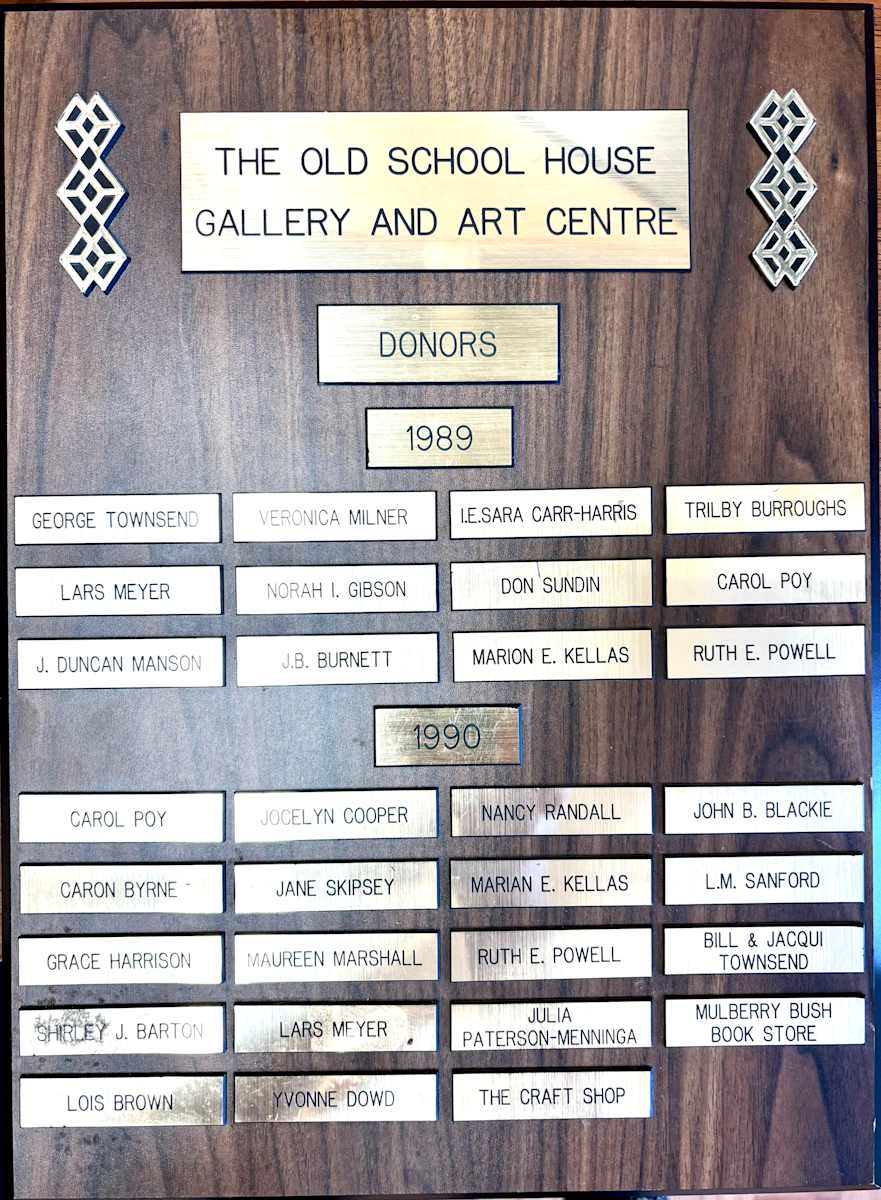 THE OLD SCHOOL HOUSE
GALLERY AND ART CENTRE
DONORS
1989
GEORGE TOWNSEND
VERONICA MILNER
I.E.SARA CARR-HARRIS
TRILBY BURROUGHS
LARS MEYER
NORAH I. GIBSON
DON SUNDIN
CAROL POY
J. DUNCAN MANSON
J.B. BURNETT
MARION E. KELLAS
RUTH E. POWELL
1990
CAROL POY
JOCELYN COOPER
NANCY RANDALL
JOHN B. BLACKIE
CARON BYRNE
JANE SKIPSEY
MARIAN E. KELLAS
L.M. SANFORD
GRACE HARRISON
MAUREEN MARSHALL
RUTH E. POWELL
BILL & JACQUI
TOWNSEND
SHIRLEY J. BARTON
LARS MEYER
JULIA
PATERSON-MENNINGA
MULBERRY BUSH
BOOK STORE
LOIS BROWN
YVONNE DOWD
THE CRAFT SHOP